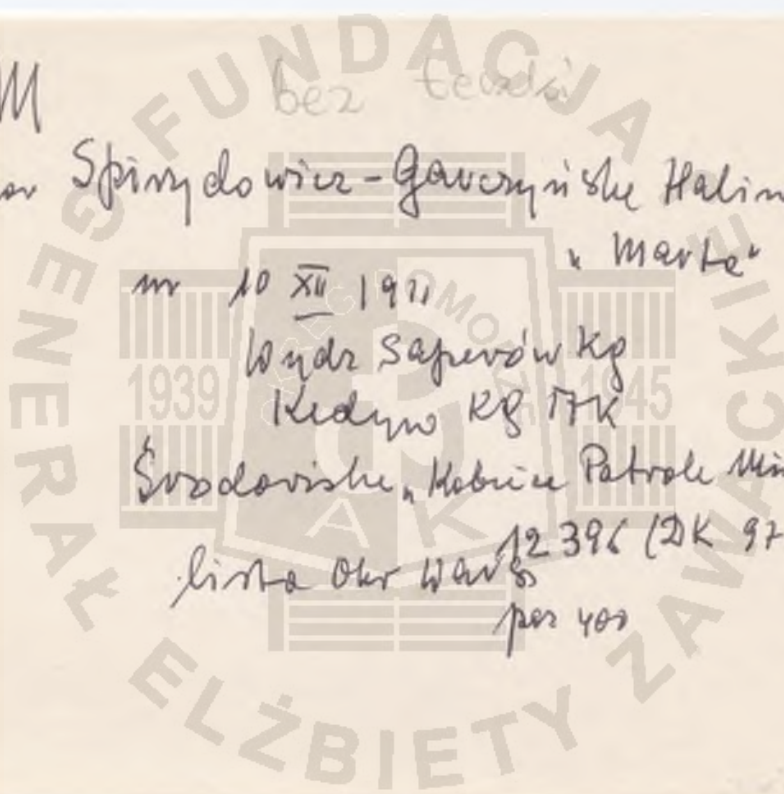 M
bez teczki
Spirydowicz-Gavczyńska Halin
"Marta"
ur 10 XII 1911
Wydz Saperów KG
Kedyw KG AK
Środowisko "Kobiece Patrole Min
12396 (DK 97
lista Okr Warsz
poz 400
FUNDACJA
GENERAŁ ELŻBIETY ZAWACKIEJ
ARMII KRAJOWEJ POMORZE
1939
1945
AK